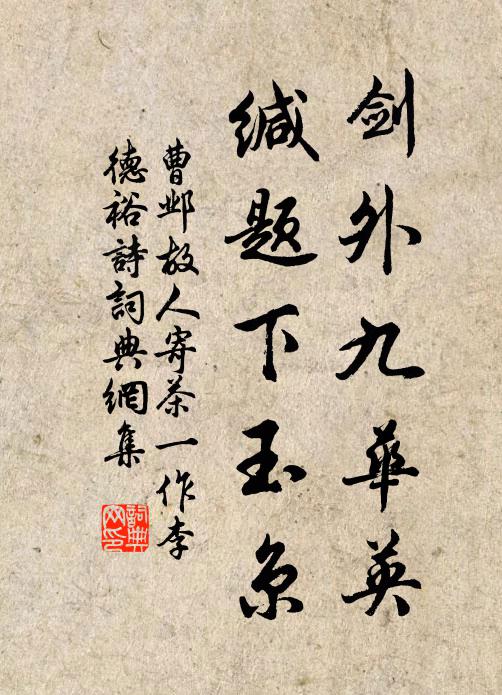 剑外九華英
缄题下玉京
曹邺故人寄茶一作李
德裕詩詞典網集
詞典网印